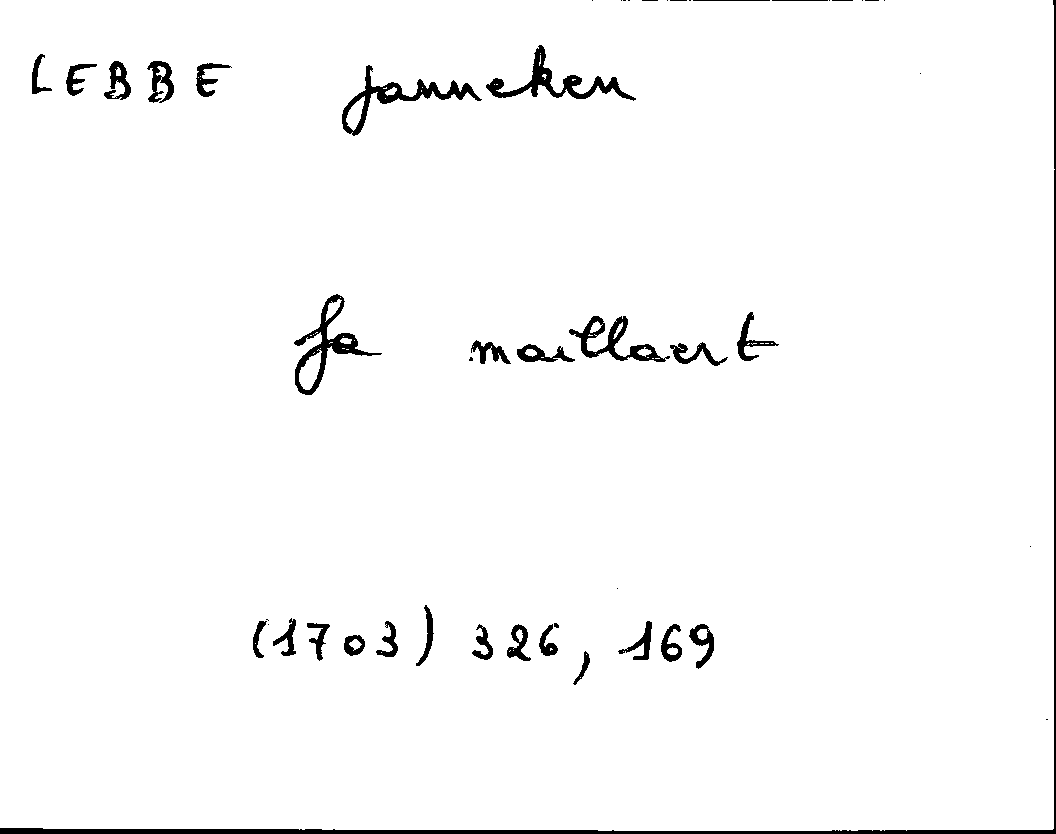 LEBBE Janneken
fa maillaert
(1703) 326, 169